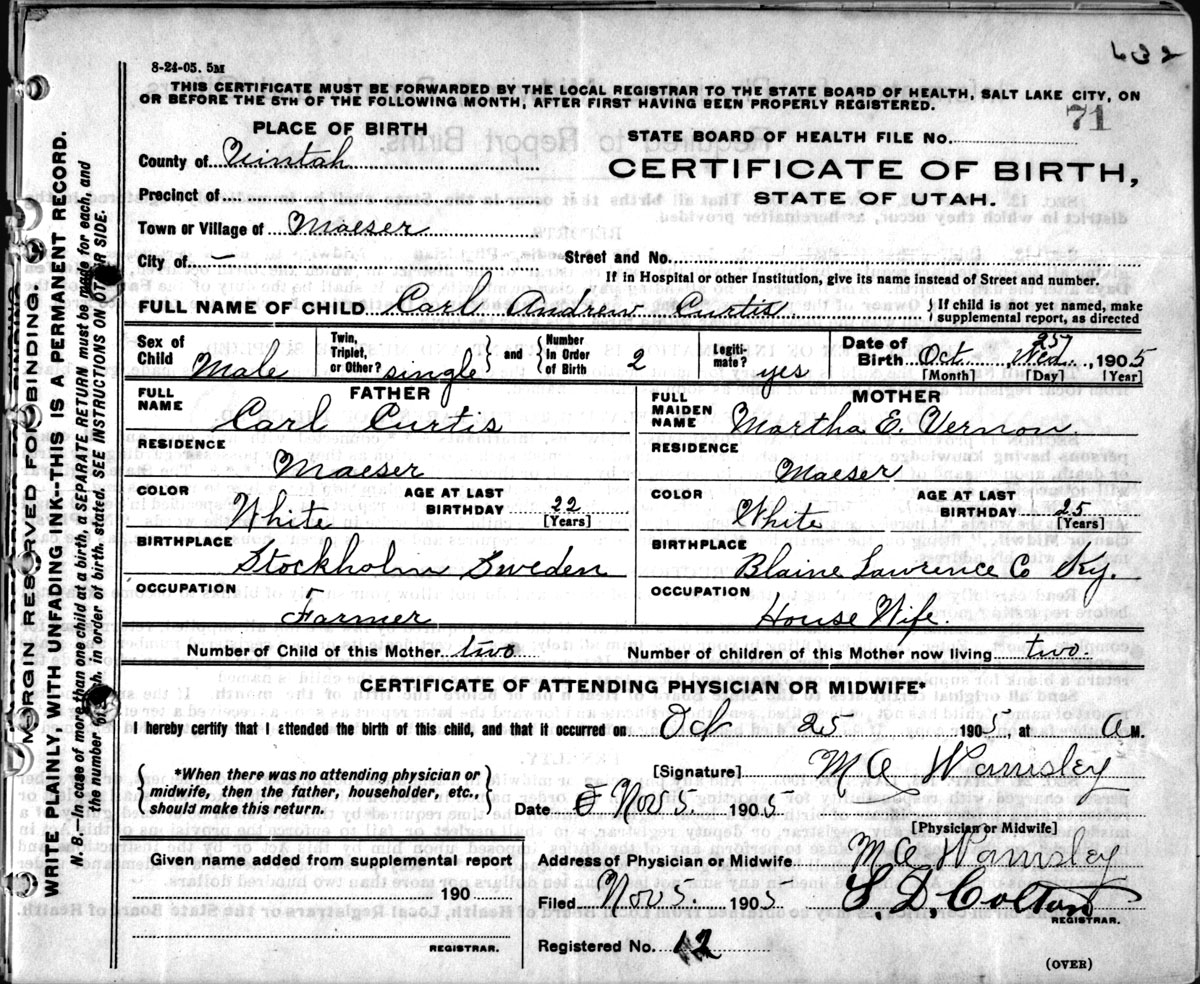 632
8-24-05. 5M
THIS CERTIFICATE MUST BE FORWARDED BY THE LOCAL REGISTRAR TO THE STATE BOARD OF HEALTH, SALT LAKE CITY, ON
OR BEFORE THE 5TH OF THE FOLLOWING MONTH, AFTER FIRST HAVING BEEN PROPERLY REGISTERED.
71
PLACE OF BIRTH
STATE BOARD OF HEALTH FILE NO.
County of Uintah
CERTIFICATE OF BIRTH,
STATE OF UTAH.
Precinct of
Town or Village of Maeser
City of — Street and No.
If in Hospital or other Institution, give its name instead of Street and number.
FULL NAME OF CHILD Carl Andrew Curtis } If child is not yet named, make supplemental report, as directed
Sex of Child Male Twin, Triplet, or Other? single } and { Number In Order of Birth 2 Legiti- mate? yes Date of Birth Oct. Wed. 25, 1905
[Month] [Day] [Year]
FATHER MOTHER
FULL NAME Carl Curtis FULL MAIDEN NAME Martha E. Vernon
RESIDENCE Maeser RESIDENCE Maeser
COLOR White AGE AT LAST BIRTHDAY 22 [Years] COLOR White AGE AT LAST BIRTHDAY 25 [Years]
BIRTHPLACE Stockholm Sweden BIRTHPLACE Blaine Lawrence Co Ky.
OCCUPATION Farmer OCCUPATION House Wife.
Number of Child of this Mother two Number of children of this Mother now living two.
CERTIFICATE OF ATTENDING PHYSICIAN OR MIDWIFE*
I hereby certify that I attended the birth of this child, and that it occurred on Oct 25 1905, at a M.
*When there was no attending physician or
midwife, then the father, householder, etc.,
should make this return.
[Signature] M A Wamsley
Date Nov 5 1905
[Physician or Midwife]
Given name added from supplemental report
Address of Physician or Midwife M A Wamsley
190
Filed Nov 5. 1905 S. D. Colton
REGISTRAR.
REGISTRAR.
Registered No. 12
(OVER)
MARGIN RESERVED FOR BINDING
WRITE PLAINLY WITH UNFADING INK--THIS IS A PERMANENT RECORD.
N. B.—In case of more than one child at a birth, a SEPARATE RETURN must be made for each, and
the number of each, in order of birth, stated. SEE INSTRUCTIONS ON OTHER SIDE.